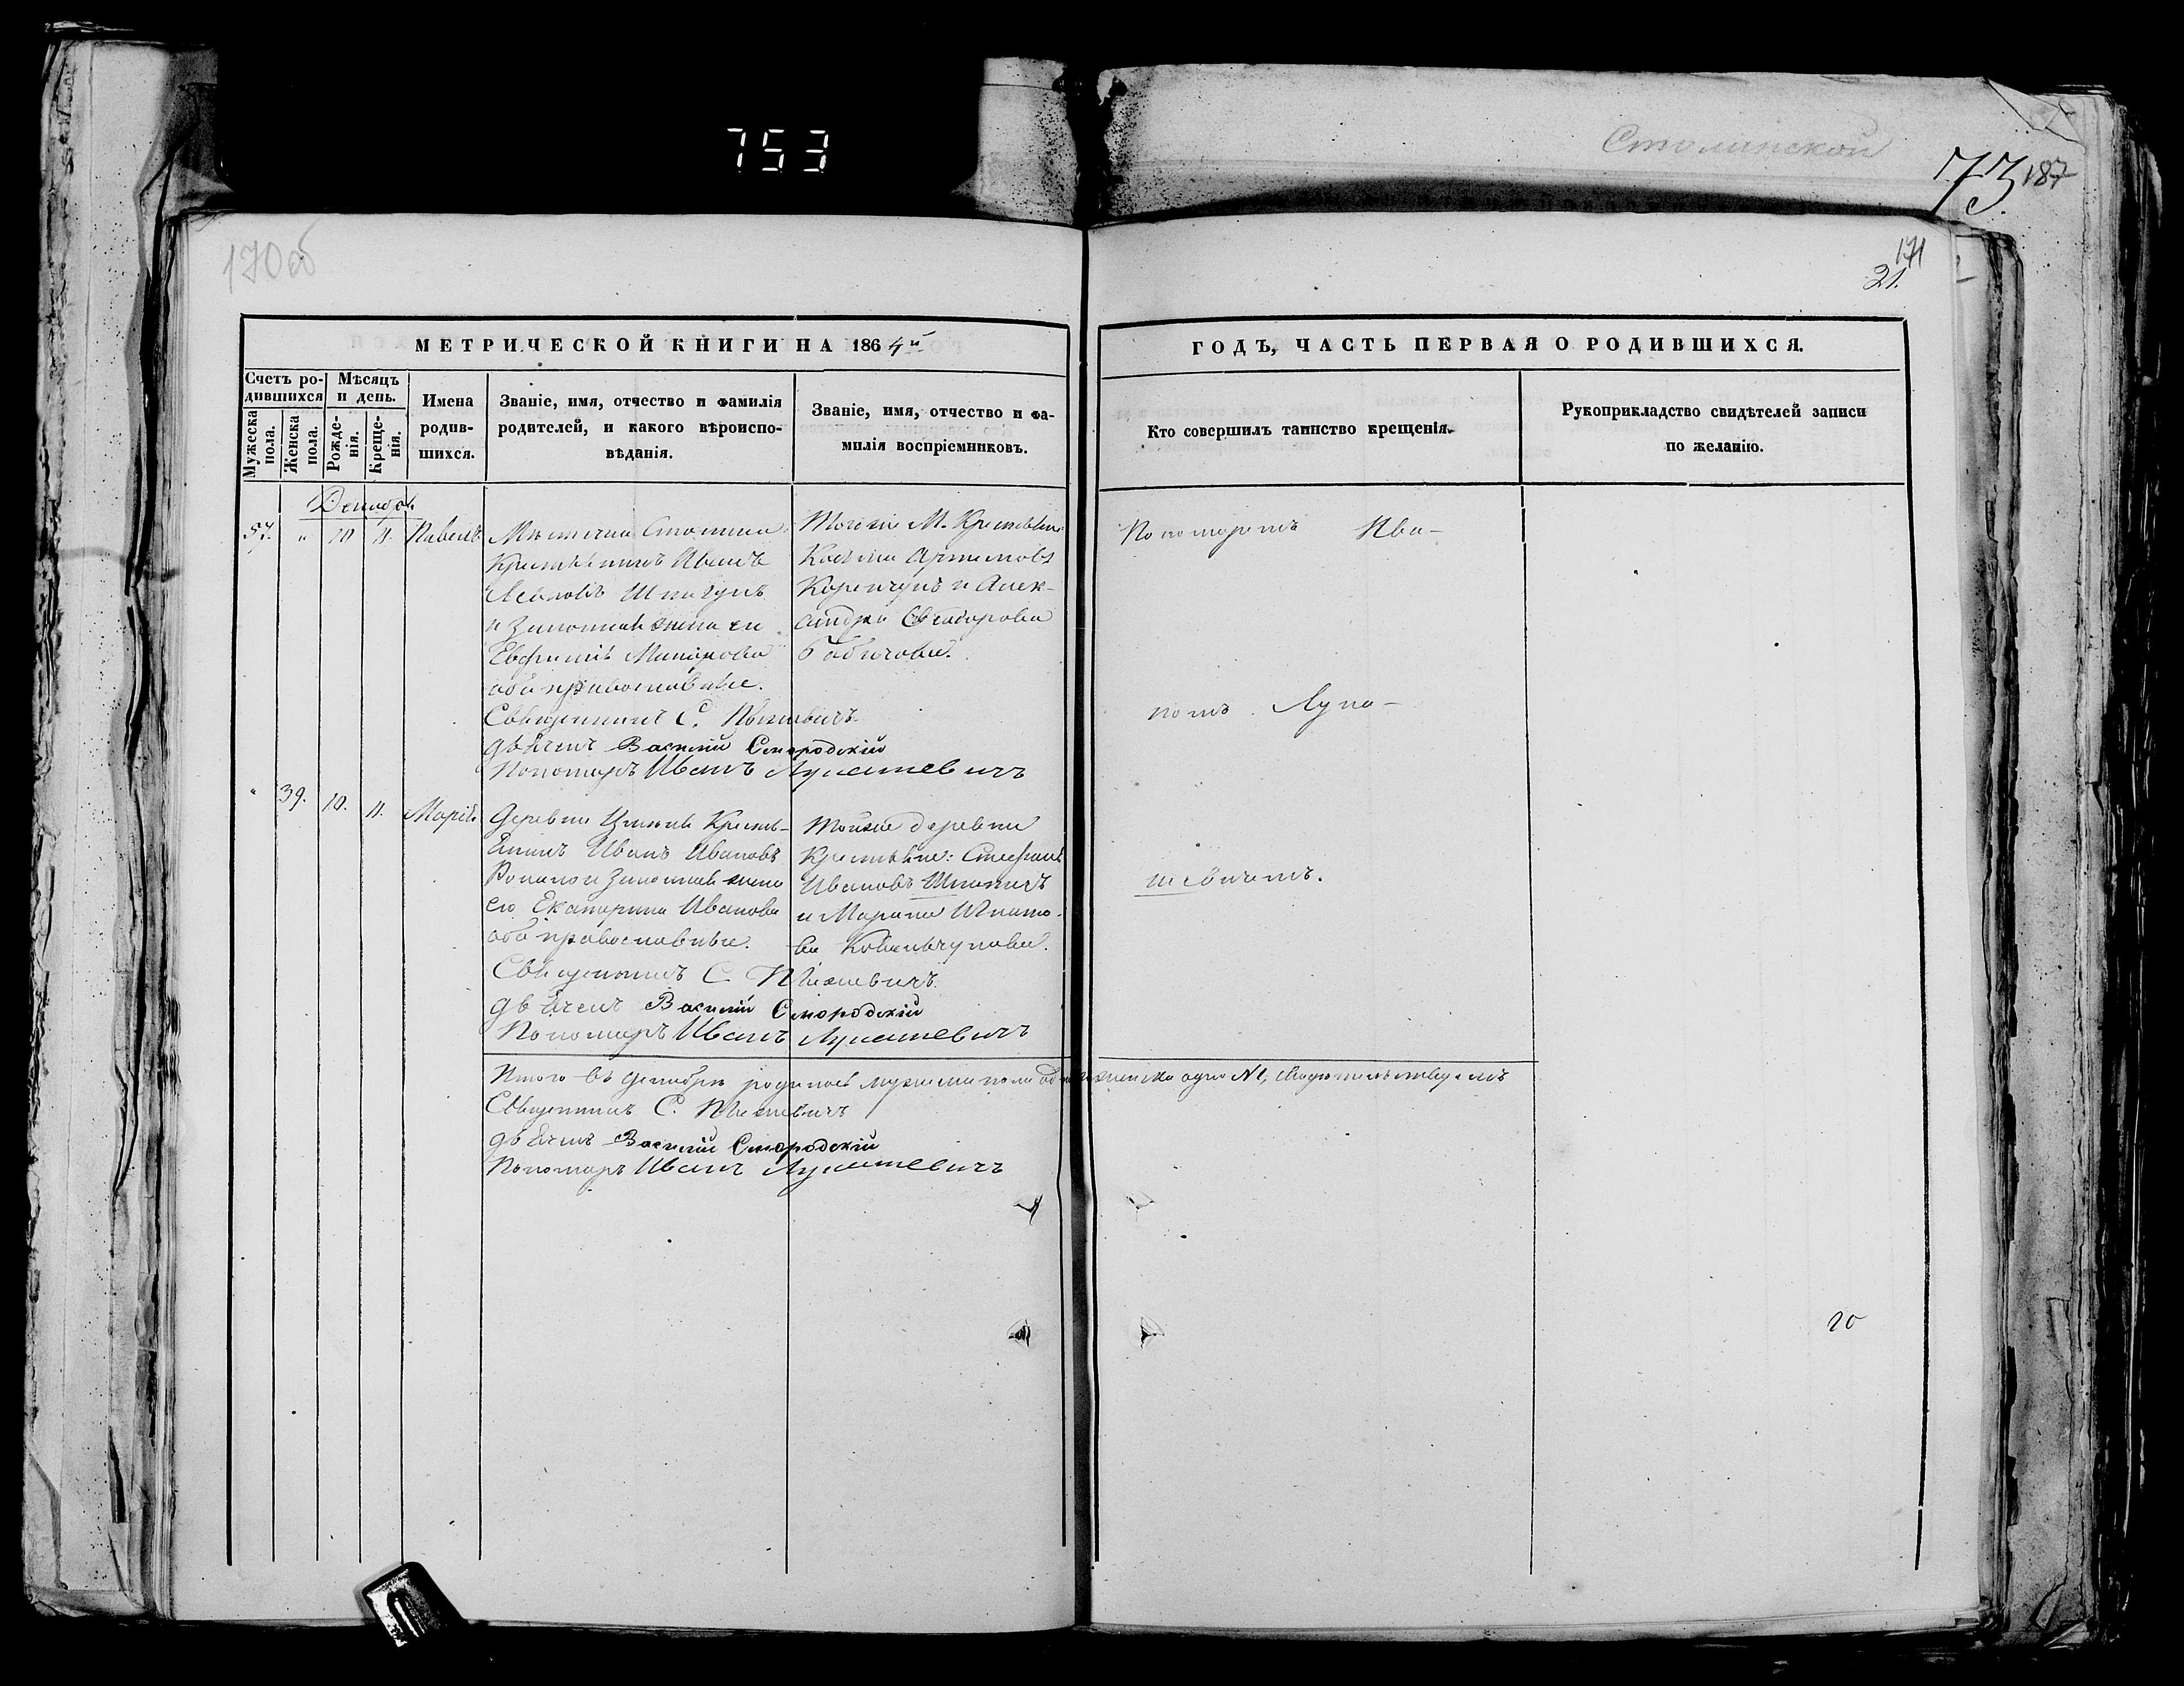 753
Столинской
73 187
170об
171
21.
МЕТРИЧЕСКОЙ КНИГИ НА 1864й
ГОДЪ, ЧАСТЬ ПЕРВАЯ О РОДИВШИХСЯ.
Счетъ родившихся
Мужеска пола.
Женска пола.
Мѣсяцъ и день.
Рожденія.
Крещенія.
Имена родившихся.
Званіе, имя, отчество и фамилія
родителей, и какого вѣроиспо-
вѣданія.
Званіе, имя, отчество и фа-
милія воспріемниковъ.
Кто совершилъ таинство крещенія.
Рукоприкладство свидѣтелей записи
по желанію.
Декабрь
57. " 10 11. Павелъ
Мѣстечка Столина
Крестьянинъ Иванъ
Шпагунъ
и Законная жена его
Евфимія
оба православные.
Священникъ С.
дьячекъ Василій Смородскій
Пономарь Иванъ Лукашевичъ
Тогоже М. Крестьяне:
Косьма Артемовъ
и Алек-
сандра
Бабичова.
Пономаремъ Ива-
номъ Лука-
шевичемъ.
" 39. 10. 11. Марія.
Деревни Крестья-
нинъ Иванъ Ивановъ
и Законная жена
его Екатерина Иванова
оба православные.
Священникъ С.
дьячекъ Василій Смородскій
Пономарь Иванъ Лукашевичъ
Тойже деревни
Крестьяне: Стефанъ
Ивановъ
и Марина Игнато-
ва Ковальчукова.
Итого въ Декабрѣ родилось мужеска пола женска одна №1,
Священникъ С.
дьячекъ Василій Смородскій
Пономарь Иванъ Лукашевичъ
20